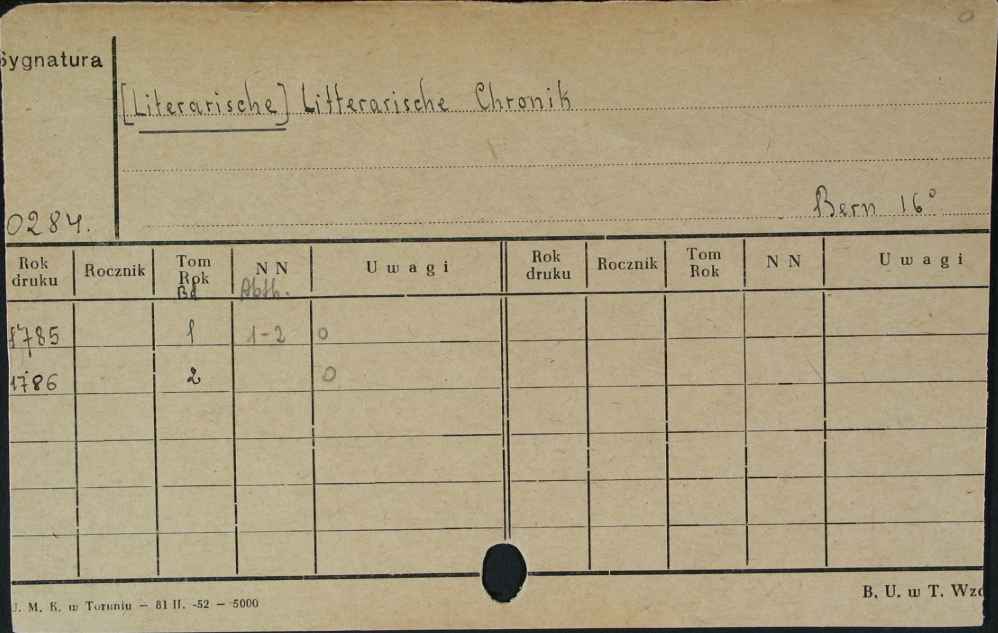 Sygnatura
[Literarische] Litterarische Chronik
0284.
Bern 16°
Rok druku Rocznik Tom Rok Bd N N Abth. Uwagi Rok druku Rocznik Tom Rok N N Uwagi
1785 1 1-2 0
1786 2 0
U. M. K. w Toruniu – 81 II. -52 – 5000
B. U. w T. Wzó
0